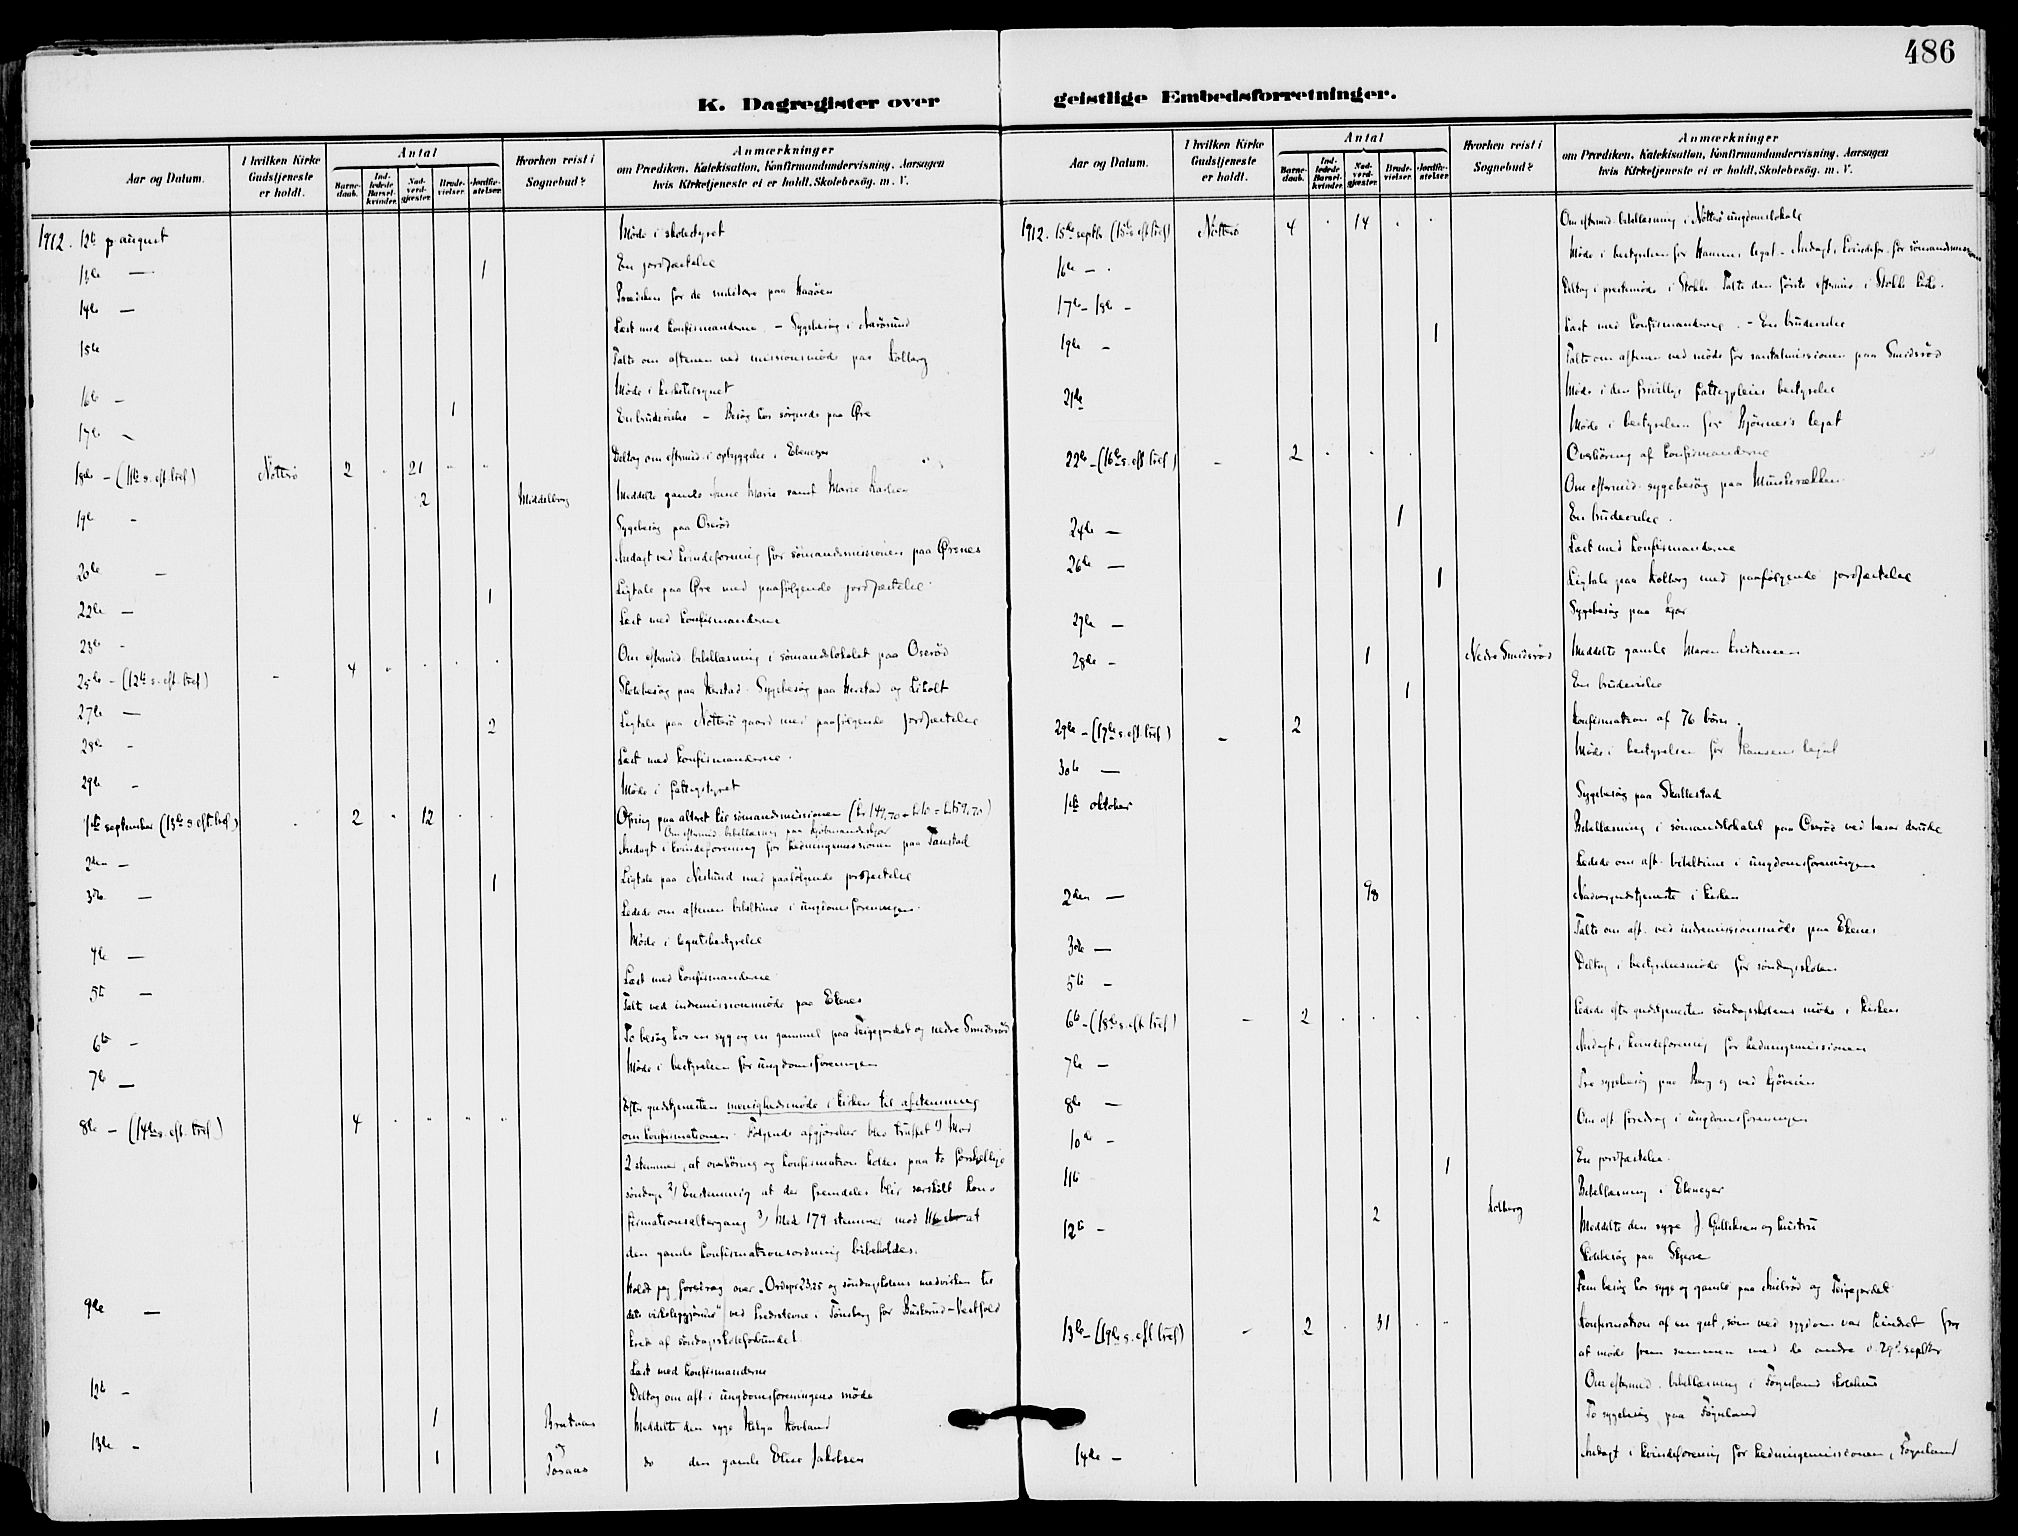 486
K. Dagregister over
geistlige Embedsforretninger.
Aar og Datum.
I hvilken Kirke Gudstjeneste er holdt.
Antal
Barne-daab.
Ind-ledede Barsel-kvinder.
Nad-verd-gjæster.
Brude-vielser.
Jordfæ-stelser.
Hvorhen reist i Sognebud?
Anmærkninger
om Prædiken, Katekisation, Konfirmandundervisning, Aarsagen
hvis Kirketjeneste ei er holdt, Skolebesög, m. V.
1912. 12te p august Møde i skolestyret
13de — 1 En jordfæstelse
14de — Præken for de militære paa Haaöen
15de Læst med konfirmanderne – Sygebesøg i Aarøsund
Talte om aftenen ved missionsmøde paa Kolberg
16de — Møde i kirketilsynet
17de — 1 En brudevielse – Besøg hos sørgende paa Øre
18de – (11te s. eft. tref.) Nøtterø 2 . 21 . . Deltog om eftmid. i opbyggelse i Ebenezer
19de – 2 Middelborg Meddelte gamle Anne Marie samt Marie Karlsen
Sygebesøg paa Oserød
20de — Andagt ved kvindeforening for sømandsmissionen paa Ørsnes
22de — 1 Ligtale paa Øre med paafølgende jordfæstelse
23de - Læst med konfirmanderne
25de – (12te s. eft. tref.) - 4 . . . . Om eftmid. bibellæsning i sømandslokalet paa Oserød
27de — Skolebesøg paa Herstad. Sygebesøg paa Herstad og Likolt
28de – 2 Ligtale paa Nøtterø gaard med paafølgende jordfæstelse
29de – Læst med konfirmanderne.
Møde i fattigstyret
1ste september (13de s. eft. tref.) . 2 . 12 . . Ofring paa alteret til sømandsmissionen
Om eftermid. bibellæsning paa
2den — Andagt i kvindeforening for hedningemissionen paa Tanstad
3die — 1 Ligtale paa Neslund med paafølgende jordfæstelse
Ledede om aftenen bibeltime i ungdomsforeningen.
4de — Møde i legatsbestyrelse
5te — Læst med konfirmanderne
6te – Talt ved indremissionsmøde paa Ekenes
7de — To besøg hos en syg og en gammel paa Teigejordet og nedre Smidsrød
Møde i bestyrelsen for ungdomsforeningen
8de – (14de s. eft. tref.) 4 . . . . Efter gudstjenesten menighedsmøde i kirken til afstemning
om konfirmationen. Følgende afgjørelser blev truffet 1) Mod
2 stemmer, at overhøring og konfirmation holdes paa to forskjellige
søndage 2) Enstemmig at der fremdeles blir særskilt kon-
firmationsaltergang 3) Med 179 stemmer mod 116 at
den gamle konfirmationsordning bibeholdes.
9de — Holdt jeg foredrag over „Ordspr 23.26 og søndagskolens medvirken til
dets virkeliggjørelse" ved kredsstevne i Tønsberg for Buskerud–Vestfold
kreds af søndagsskoleforbundet.
12te – Læst med konfirmanderne
Deltog om aft. i ungdomsforeningens møde
13de – 1 Meddelte den syge Helga Hovland
1 do den gamle Elise Jakobsen
1912. 15de septbr (15de s eft tref) Nøtterø 4 . 14 . . Om eftermid. bibellæsning i Nøtterø ungdomslokale
16de – . Møde i bestyrelsen for Hansens legat – Andagt i kvindefor. for sømandsmissionen
17de – 18de – Deltog i prestemøde i Stokke. Talte den første eftermid. i Stokke kirke.
19de – 1 Læst med konfirmanderne. – En brudevielse
Talte om aftenen ved møde for santalmissionen paa Smidsrød
21de Møde i den frivillige fattigpleies bestyrelse
Møde i bestyrelsen for Bjønnes's legat
22de – (16de s. eft. tref.) – 2 . . . Overhøring af konfirmanderne
Om eftermid. sygebesøg paa Munkerækken
24de — 1 En brudevielse.
26de — Læst med konfirmanderne
1 Ligtale paa Kolberg med paafølgende jordfæstelse
27de — Sygebesøg paa Kjær
28de – 1 Nedre Smidsrød Meddelte gamle Maren Kristensen
1 En brudevielse
29de – (17de s. eft. tref.) – 2 Konfirmation af 76 børn.
30te — Møde i bestyrelsen for Hansens legat
1ste oktober Sygebesøg paa Skallestad
Bibellæsning i sømandslokalet paa Oserød ved basar dersteds
Ledede om aft. bibeltime i ungdomsforeningen
2den — 98 Nadvergudstjeneste i kirken
3die — Talte om aft. ved indremissionsmøde paa Ekenes
5te – Deltog i bestyrelsesmøde for søndagsskolen
6te – (18de s. eft. tref.) – 2 . . . . Ledede efter gudstjenesten søndagsskolens møde i kirken
7de — Andagt i kvindeforening for hedningemissionen
8de — Tre sygebesøg paa Berg og ved
10de – Om aft. foredrag i ungdomsforeningen
11te 1 En jordfæstelse.
Bibellæsning i Ebenezer
12te – 2 Kolberg Meddelte den syge J Gulliksen og hustru
Skolebesøg paa Skjerve
Fem besøg hos syge og gamle paa og Teigejordet
13de – (19de s. eft tref) – 2 . 31 . . Konfirmation af en gut, som ved sygdom var hindret fra
at møde frem sammen med de andre d. 29de septbr
Om eftermid. bibellæsning i Føynland skolehus
To sygebesøg paa Føynland
14de – Andagt i kvindeforening for hedningemissionen, Føynland